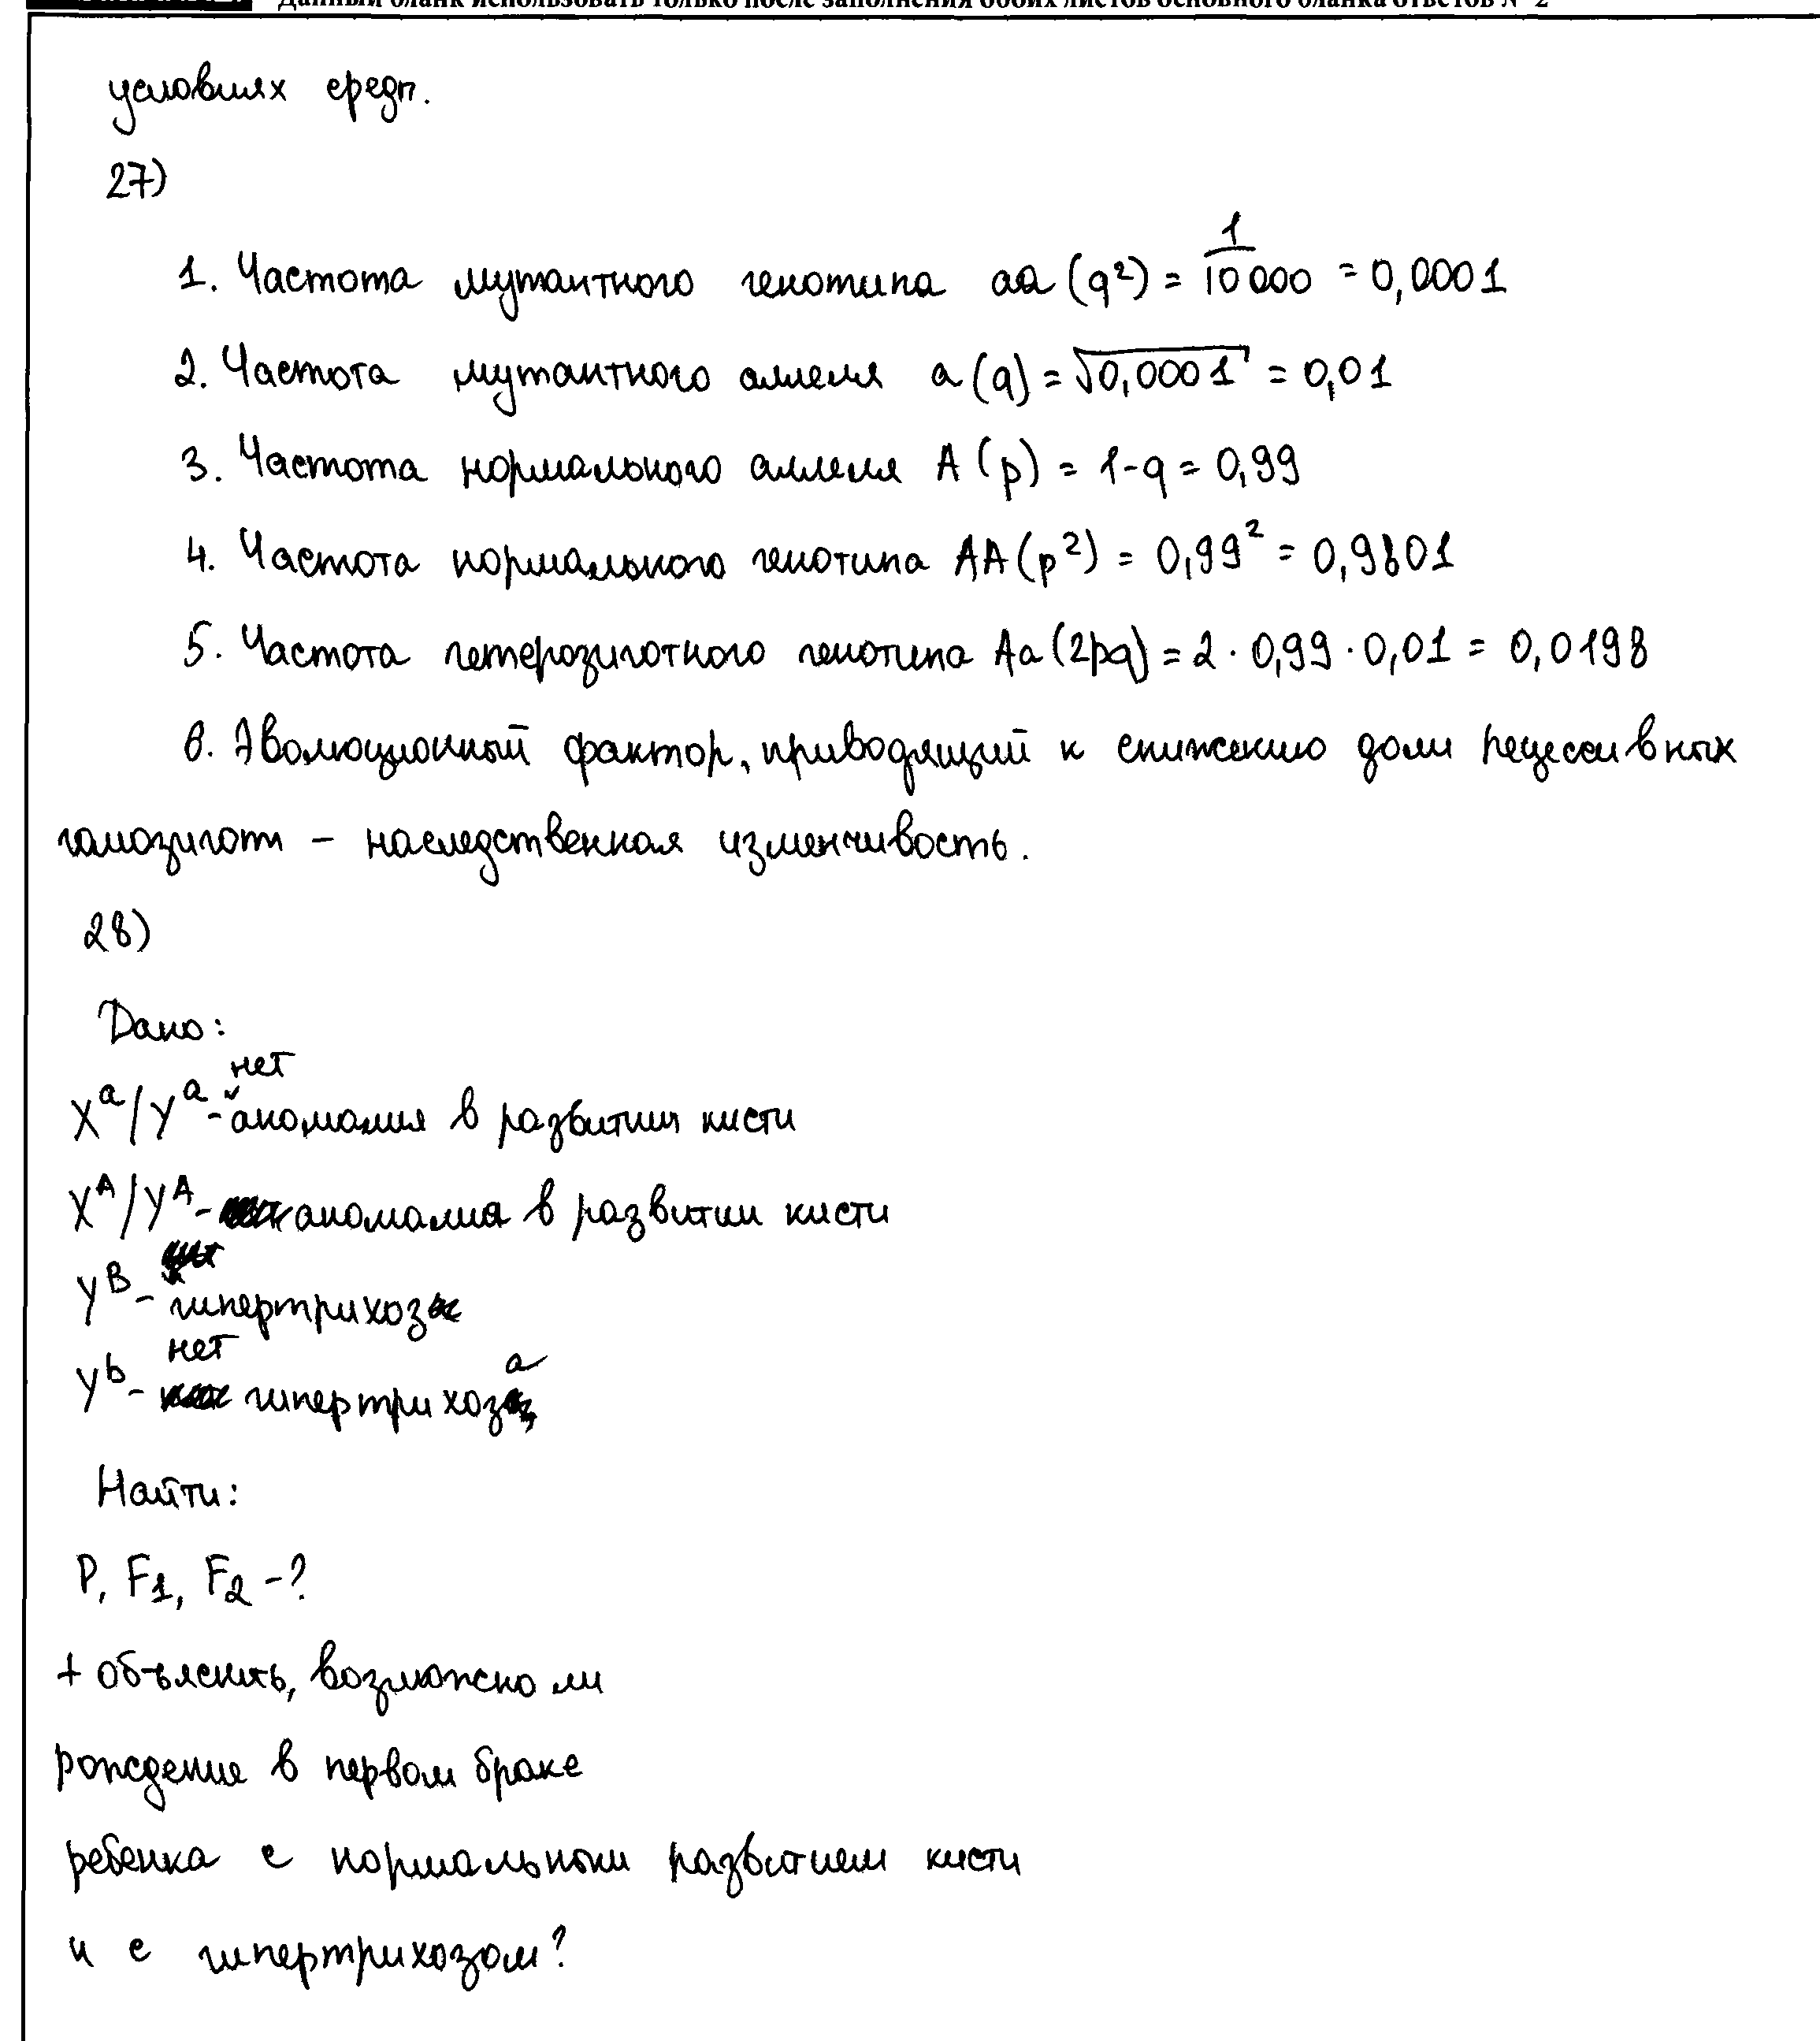 Данный бланк использовать только после заполнения обоих листов основного бланка ответов № 2
условиях среды.
27)
1. Частота мутантного генотипа aa (q²) = 1/10000 = 0,0001
2. Частота мутантного аллеля a (q) = √0,0001 = 0,01
3. Частота нормального аллеля A (p) = 1-q = 0,99
4. Частота нормального генотипа AA (p²) = 0,99² = 0,9801
5. Частота гетерозиготного генотипа Aa (2pq) = 2 · 0,99 · 0,01 = 0,0198
6. Эволюционный фактор, приводящий к снижению доли рецессивных
гомозигот – наследственная изменчивость.
28)
Дано:
Xᵃ/Yᵃ - нет аномалия в развитии кисти
Xᴬ/Yᴬ - аномалия в развитии кисти
Yᴮ - гипертрихоз
Yᵇ - нет гипертрихоза
Найти:
P, F₁, F₂ -?
+ объяснить, возможно ли
рождение в первом браке
ребенка с нормальным развитием кисти
и с гипертрихозом?